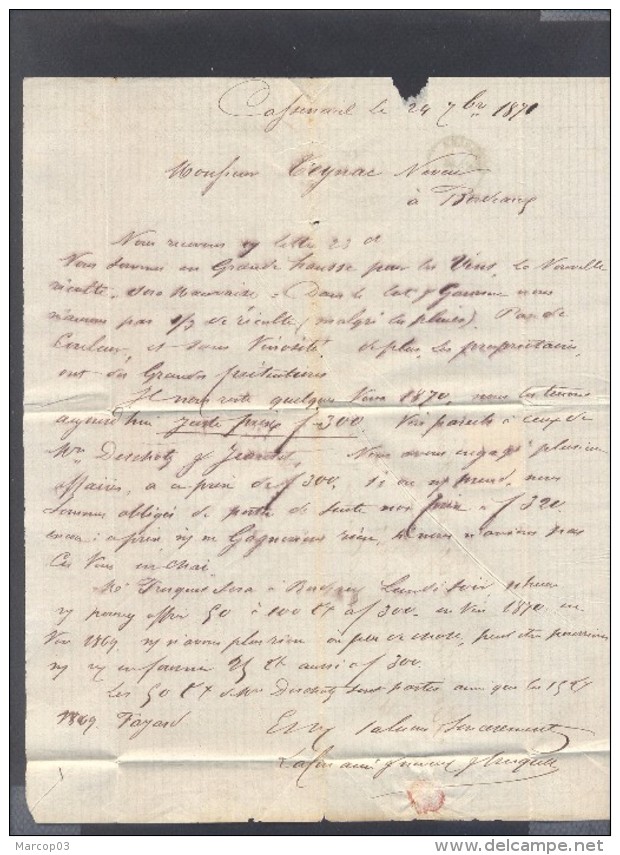 Casseneuil le 24 7bre 1871
Monsieur Teynac Neveu
à Bordeaux
Nous recevons v/ lettre 23 ct
Nous sommes en Grande hausse pour les Vins, la Nouvelle
récolte, sera Mauvaise = Dans le Lot & Garonne nous
n'aurons pas 1/3 de récolte (malgré les pluies). Pas de
Couleur, et sans Vinosité. de plus, les propriétaires,
ont des Grandes prétentions
Il nous reste quelques Vins 1870, nous les tenons
aujourd'hui Juste prix f 300. Vins pareils à ceux de
Mrs Deschotz & Nous avons engagé plusieurs
affaires, à ce prix de f 300. si on n/ prend, nous
sommes obligés de porter de suite nos prix à f 320.
encore à ce prix n/ ne Gagnerions rien, si nous n'avions pas
Ces Vins en chai
sera à Lundi soir, 
v/ pourrez offrir 50 à 100 Tx à f 300. en Vin 1870. en
Vin 1869 n/ n'avons plus rien ou peu de chose, peut être pourrions
n/ v/ en fournir 25 Tx aussi à f 300.
Les 50 Tx de Mrs Deschotz sont partis ainsi que les 15 Tx
1869. Fayard
Et v/ saluons Sincèrement